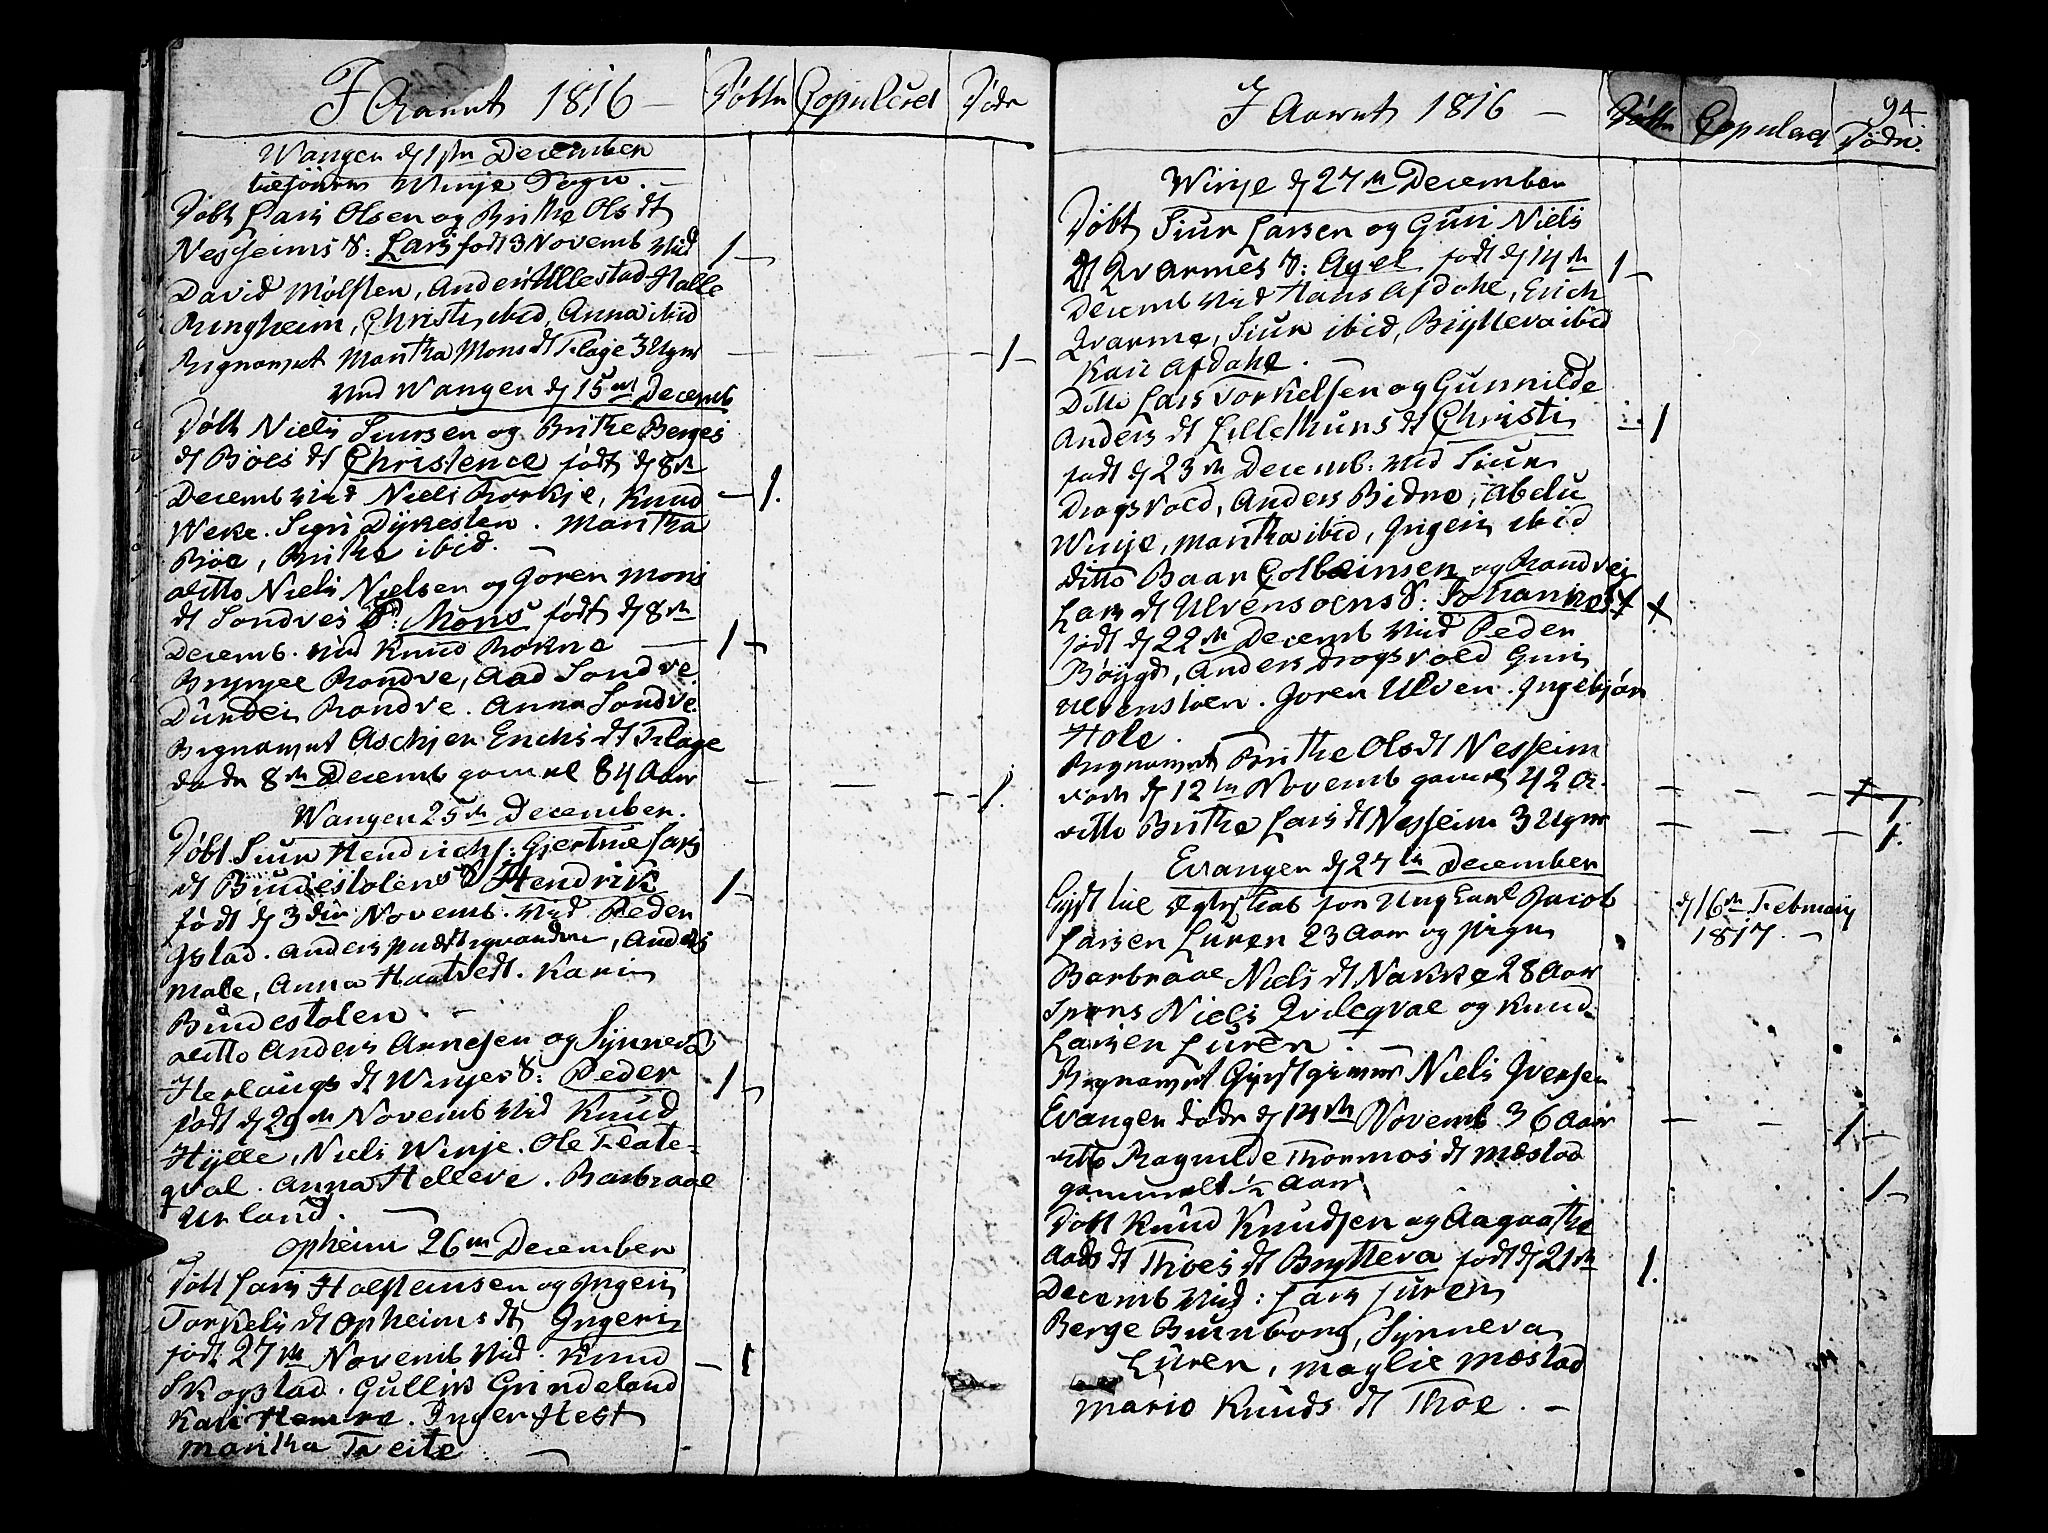 I Aaret 1816 — Døbte Copulered Døde
Wangen d 1ste December
Winje Sogn.
Døbt Lars Olsen og Brithe Ols dt
Nesheims S: Lars født 3 Novemb ved 1
David Mølsten, Anders Ullestad Halle
Ringheim, Christi ibid, Anna ibid
Begravet Martha Mons dt Flage 3 Uger 1
Ved Wangen d 15de Decemb
Døbt Niels Siursen og Brithe Berges
dt Bøes dt Christence født d 8de
Decemb ved Niels Rokje, Knud 1.
Weke. Sigri Dykesten. Martha
Böe, Brithe ibid.
ditto Niels Nielsen og Joren Mons
dt Sondves S: Mons født d 8de
Decemb. ved Knud Rokne 1
Brynjel Rondve, Aad Sondve
Durdei Rondve. Anna Sondve.
Begravet Aschjer Erichs dt Flage
døde 8de Decemb gammel 84 Aar 1.
Wangen 25de December.
Døbt Siur Hendrichs: Gjertrue Lars
dt Bindestolens S Hendrik 1
født d 3die Novemb. ved Peder
Gstad. Anders, Anders
Male, Anna Haatvedt. Kari
Bindestolen
ditto Anders Arnesen og Synneva
Herlaugs dt Winjes S: Peder 1
født d 29de Novemb ved Knud
Hylle, Niels Winje. Ole Flate-
qval. Anna Helleve. Barbraae
Urland.
Opheim 26de December
Døbt Lars Holsteinsen og Ingeri
Torkels dt Opheims dt Ingeri
født 27de Novemb ved. Knud 1
Skogstad. Gullik Grindeland
Kari Hemre. Inger Hest
Martha Tveite

94
I Aaret 1816 — Døbte Copulered Døde.
Winje d 27de December
Døbt Siur Larsen og Guri Niels
dt Qvarmes S: Axel født d 14de 1
Decemb ved Hans Afdahe, Erich
Qvarme, Siur ibid, Brytteva ibid
Kari Afdahe.
Ditto Lars Torkelsen og Gunnilde
Anders dt Lillethuns dt Christi 1
født d 23de Decemb: ved Siur
Dragsvold, Anders Bidne, Abelu
Winje, Martha ibid, Ingeri ibid
ditto Baar Colbeinsen og Randvei
Lars dt Ulvensoens S: Johannes + +
født d 22de Decemb ved Peder
Bøygd, Anders Dragsvold Guri
Ulvensloen. Joren Ulven. Ingebjør
Hole.
Begravet Brithe Ols dt Nesheim
døde d 12te Novemb gammel 42 A. + 1
ditto Brithe Lars dt Nesheim 3 Uger 1.
Evangen d 27de December
for Ung Karl Jacob d 16de Febuary
Larsen Luren 23 Aar og pige 1817. —
Barbraae Niels dt Nakke 28 Aar
Spons Niels Qvileqval og Knud
Larsen Luren.
Begravet Niels Iversen
Evangen døde d 14de Novemb 36 Aar 1
ditto Ragnilde Thormos dt Mæstad
gammel ½ Aar 1
Døbt Knud Knudsen og Aagaathe
Aads dt Thoes dt Brytteva født d 21de 1.
Decemb ved: Lars Luren
Berge Bunborg, Synneva
Luren, Maglie Mæstad
Mario Knuds dt Thoe.